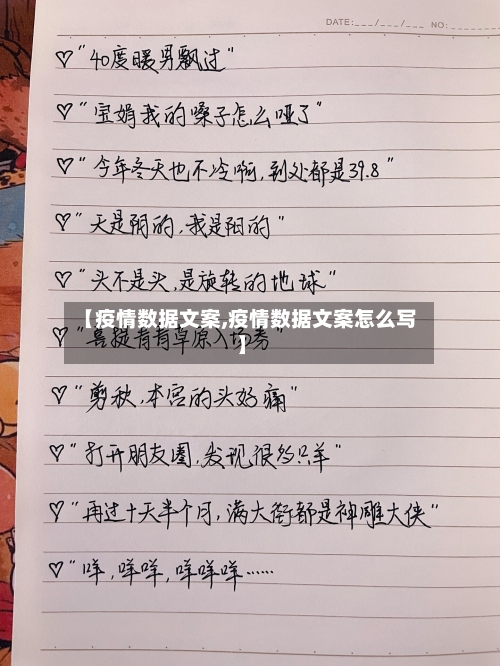 DATE:___/___/___ NO:
♡"40度暖男飘过"
♡"宝娟我的嗓子怎么哑了"
♡"今年冬天也不冷啊,到处都是39.8"
♡"天是阴的,我是阳的"
♡"头不是头,是旋转的地球"
【疫情数据文案,疫情数据文案怎么写
】
♡"喜提青青草原入场券"
♡"剪秋,本宫的头好痛"
♡"打开朋友圈,发现很多只羊"
♡"再过十天半个月,满大街都是神雕大侠"
♡"咩,咩咩,咩咩咩……